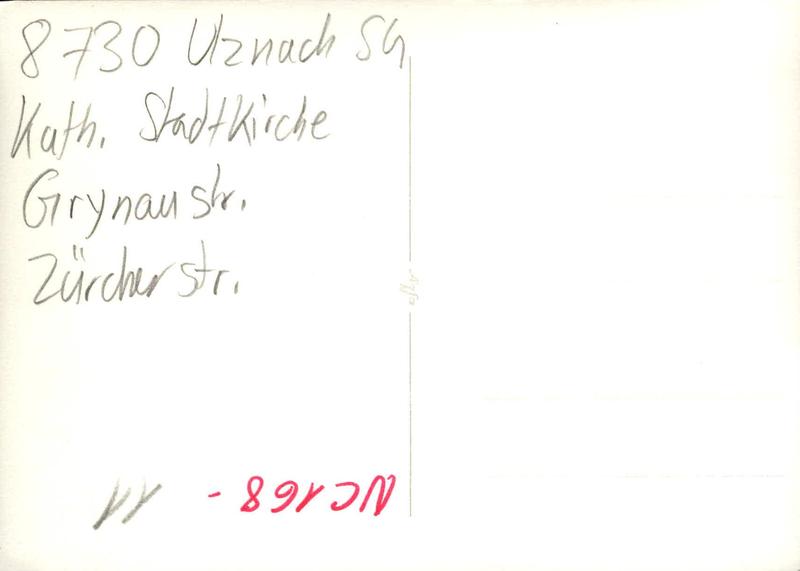 8730 Uznach SG
Kath. Stadtkirche
Grynaustr.
Zürcherstr.
NC 168 - 11